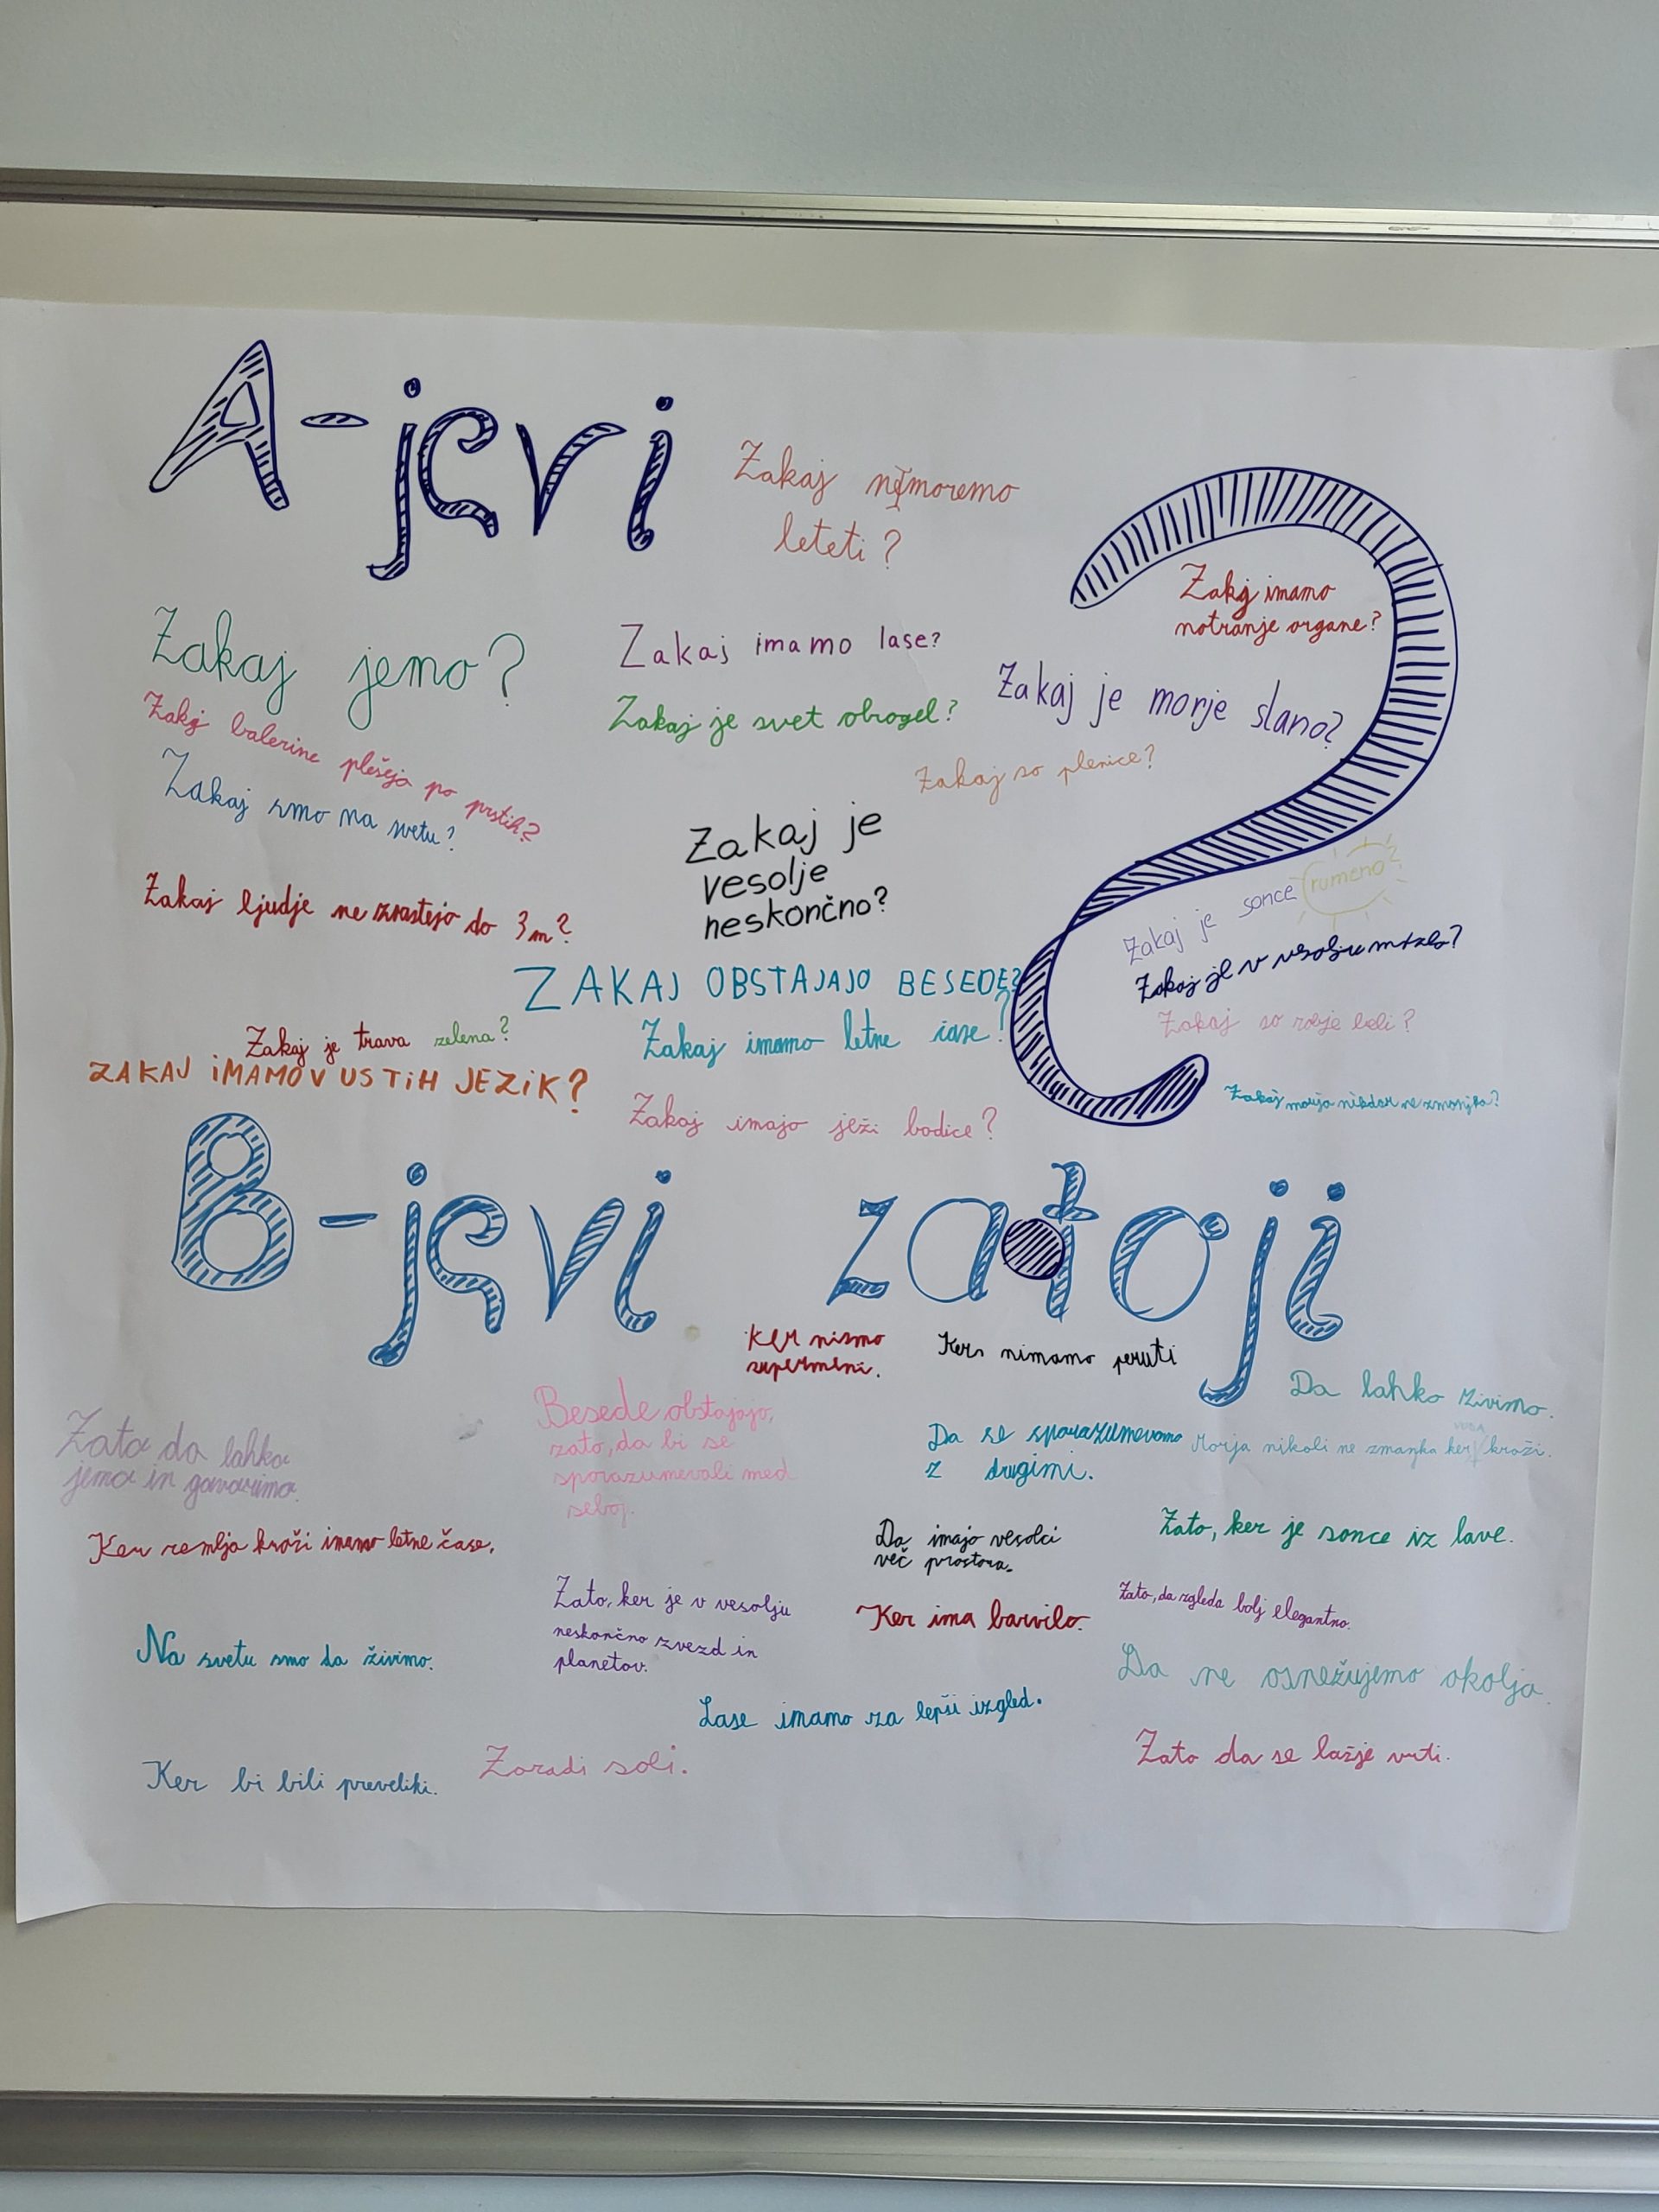 A-jevi
Zakaj ne moremo
leteti?
Zakaj imamo
notranje organe?
Zakaj jemo?
Zakaj imamo lase?
Zakaj je morje slano?
Zakaj je svet okrogel?
Zakaj balerine plešejo po prstih?
Zakaj so plenice?
Zakaj smo na svetu?
Zakaj je
vesolje
neskončno?
Zakaj ljudje ne zrastejo do 3m?
Zakaj je sonce rumeno?
Zakaj je v vesolju mrzlo?
ZAKAJ OBSTAJAJO BESEDE?
Zakaj so rože beli?
Zakaj je trava zelena?
Zakaj imamo letne čase?
ZAKAJ IMAMO V USTIH JEZIK?
Zakaj morja nikdar ne zmanjka?
Zakaj imajo ježi bodice?
B-jevi zatoji
Ker nismo
supermeni.
Ker nimamo peruti
Da lahko živimo.
Zato da lahko
jemo in govorimo.
Besede obstajajo,
zato, da bi se
sporazumevali med
seboj.
Da se sporazumevamo
z drugimi.
voda
Morja nikoli ne zmanka ker kroži.
Ker zemlja kroži imamo letne čase.
Da imajo vesolci
več prostora.
Zato, ker je sonce iz lave.
Zato, ker je v vesolju
neskončno zvezd in
planetov.
Ker ima barvilo.
Zato, da zgleda bolj elegantno.
Na svetu smo da živimo.
Da ne osnežujemo okolja.
Lase imamo za lepši izgled.
Zato da se lažje vrti.
Ker bi bili preveliki.
Zaradi soli.